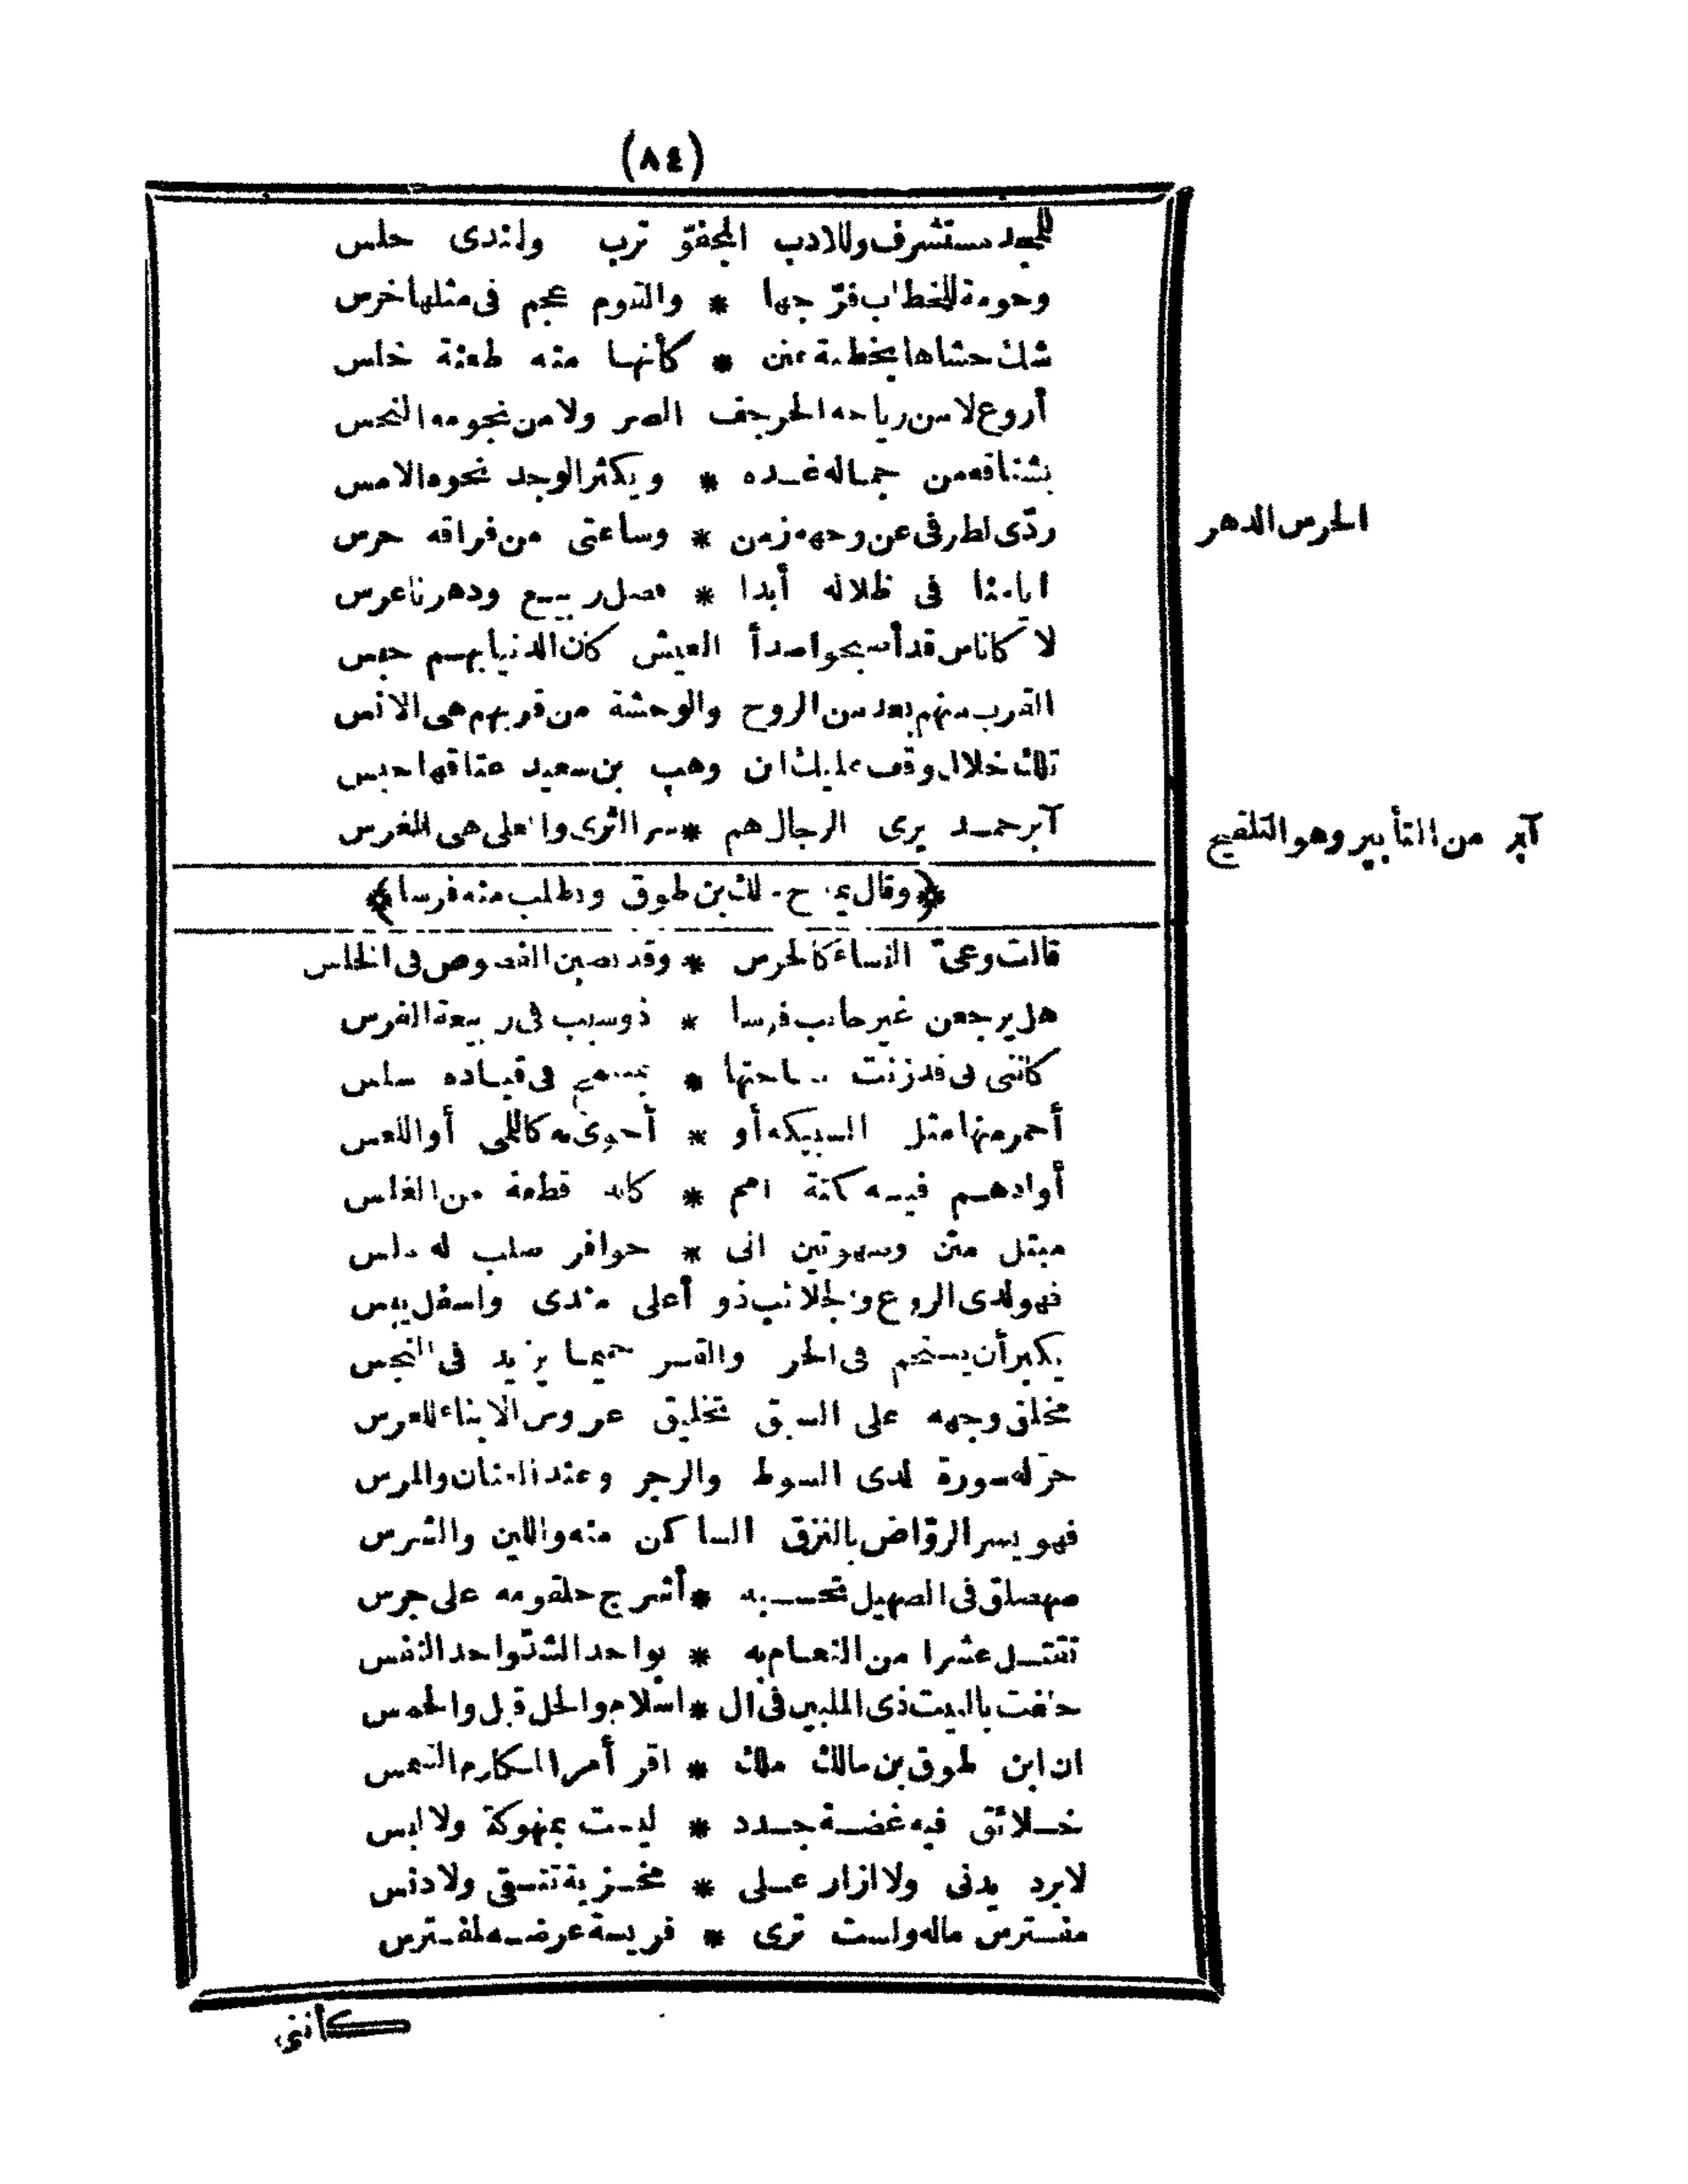 (٨٤)
للمجد مستشرف وللادب المجفوّ ترب ولندى حلس
وحومة للخطاب فرّ جها * والقوم عجم فى مثلها خرس
شك حشاها بخطبة عنن * كأنها منه طعنة خلس
أروع لا من رياحه الحرجف الصر ولا من نجومه النحس
يشتاقه من جماله غده * ويكثر الوجد نحوه الامس
ردّى لطرفى عن وجهه زمن * وساعتى من فراقه حرس
الحرس الدهر
ايامنا فى ظلاله أبدا * فصل ربيع ودهرنا عرس
لا كاناس قد أصبحوا صدأ العيش كان الدنيا بهم حبس
القرب منهم بعد من الروح والوحشة من قربهم هى الانس
تلك خلال وقف عليك ابن وهب بن سعيد عتاقها حبس
آبر حمد يرى الرجال هم * سر الثرى والعلى هى المغرس
آبر من التأبير وهو التلقيح
﴿وقال يمدح مالك بن طوق ويطلب منه فرسا﴾
قالت وعىّ النساء كالخرس * وقد يصبن الفصوص فى الخلس
هل يرجعن غير خائب فرسا * ذو سبب فى ربيعة الفرس
كأننى بى قد زنت ساحتها * بمسمح فى قياده سلس
أحمر منها مثل السبيكه أو * أحوى به كاللمى أو اللعس
أو ادهم فيه كمتة امم * كانه قطعة من الغلس
مبتل متن وصهوتين الى * حوافر صلب له ملس
فهو لدى الروع والجلائب ذو أعلى مندى واسفل يبس
يكبر أن يستحم فى الحر والقر حميما يزيد فى النجس
مخلق وجهه على السبق تخليق عروس الابناء للعرس
حر له سورة لدى السوط والزجر وعند العنان والمرس
فهو يسر الروّاض بالنزق الساكن منه واللين والشرس
صهصلق فى الصهيل تحسبه * أشرج حلقومه على جرس
تقتل عشرا من النعام به * بواحد الشدّ واحد النفس
حلفت بالبيت ذى الملبين فى ال * اسلام والحل قبل والحمس
ان ابن طوق بن مالك ملك * اقر أمر المكارم الشمس
خلائق فيه غضة جدد * ليست بمنهوكة ولا لبس
لا برد يدنى ولا ازار على * مخزية تتقى ولا دنس
مفترس ماله ولست ترى * فريسة عرضه لمفترس
كأننى